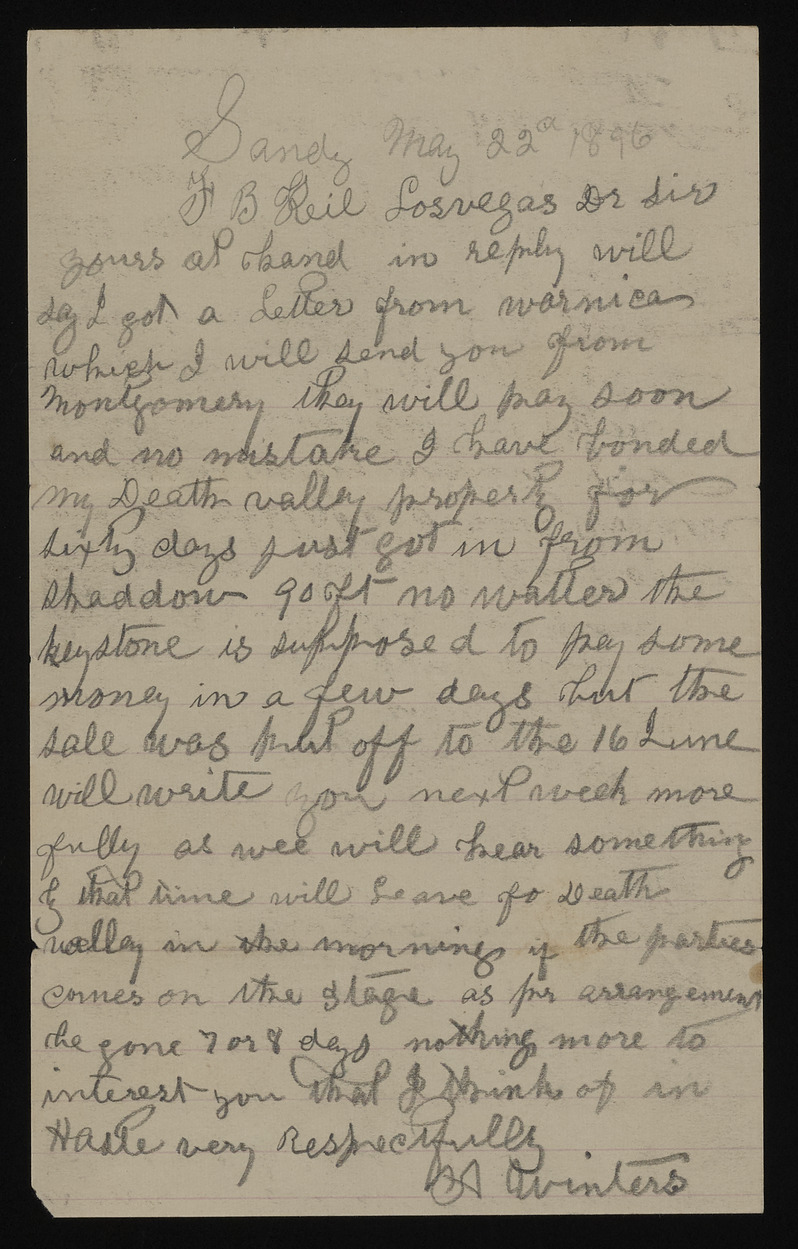 Sandy May 22d 1896
F B Keil Losvegas Dr Sir
yours at hand in reply will
say I got a Letter from warnica
which I will send you from
Montgomery they will pay soon
and no mistake I have bonded
my Death valley property for
sixty days just got in from
shaddow 90 ft no watter the
keystone is supposed to pay some
money in a few days but the
sale was put off to the 16 June
will write you next week more
fully as wee will hear something
by that time will Leave fo Death
valley in the morning if the parties
comes on the stage as pr arrangement
be gone 7 or 8 days nothing more to
interest you that I think of in
Haste very Respectfully
A Winters